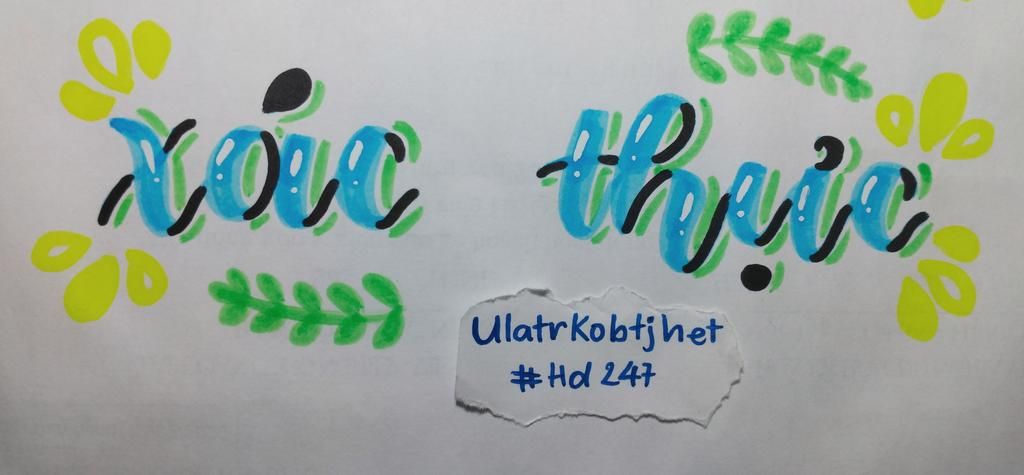 xác thực
UlatrKobtjhet
#Hd 247